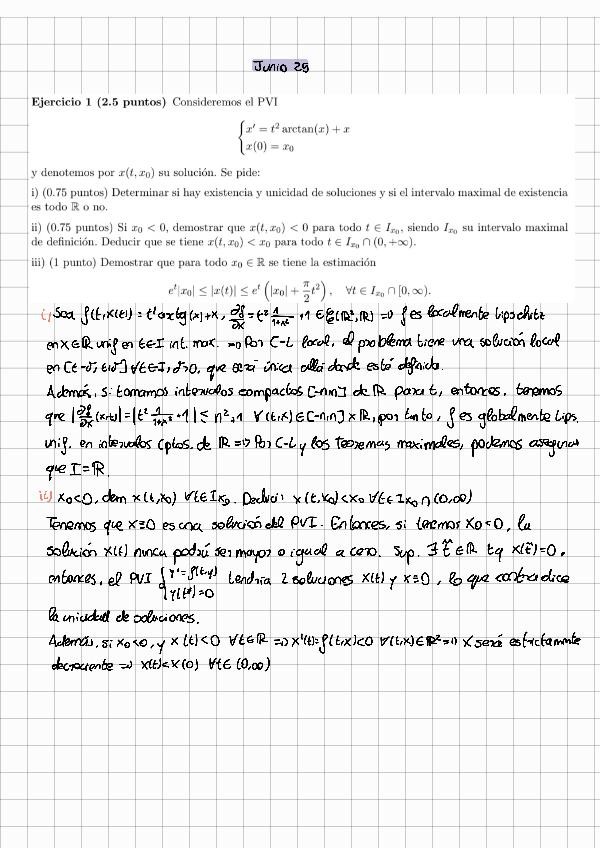 Junio 25
Ejercicio 1 (2.5 puntos) Consideremos el PVI
{ x′ = t² arctan(x) + x
x(0) = x₀
y denotemos por x(t, x₀) su solución. Se pide:
i) (0.75 puntos) Determinar si hay existencia y unicidad de soluciones y si el intervalo maximal de existencia
es todo ℝ o no.
ii) (0.75 puntos) Si x₀ < 0, demostrar que x(t, x₀) < 0 para todo t ∈ Iₓ₀, siendo Iₓ₀ su intervalo maximal
de definición. Deducir que se tiene x(t, x₀) < x₀ para todo t ∈ Iₓ₀ ∩ (0, +∞).
iii) (1 punto) Demostrar que para todo x₀ ∈ ℝ se tiene la estimación
eᵗ|x₀| ≤ |x(t)| ≤ eᵗ (|x₀| + π/2 t²), ∀t ∈ Iₓ₀ ∩ [0, ∞).
i) Sea f(t,x(t)) = t² arctg(x)+x, ∂f/∂x = t² 1/(1+x²) +1 ∈ C(ℝ²,ℝ) => f es localmente lipschitz
en x∈ℝ unif en t∈I int. max. => Por C-L local, el problema tiene una solución local
en [t-δ, t+δ] ∀t∈I, δ>0, que será única allá donde esté definida.
Además, si tomamos intervalos compactos [-n,n] de ℝ para t, entonces, tenemos
que |∂f/∂x (x,t)| = |t² 1/(1+x²) +1| ≤ n²+1 ∀(t,x)∈[-n,n]×ℝ, por tanto, f es globalmente Lips.
unif. en intervalos cptos. de ℝ => Por C-L y los teoremas maximales, podemos asegurar
que I=ℝ.
ii) x₀<0, dem x(t,x₀) ∀t∈Iₓ₀. Deducir x(t,x₀)<x₀ ∀t∈Iₓ₀∩(0,∞)
Tenemos que x≡0 es una solución del PVI. Entonces, si x₀<0, la
solución x(t) nunca podrá ser mayor o igual a cero. Sup. ∃ t̂∈ℝ tq x(t̂)=0,
entonces, el PVI { y'=f(t,y) tendría 2 soluciones x(t) y x≡0, lo que contradice
y(t̂)=0
la unicidad de soluciones.
Además, si x₀<0, y x(t)<0 ∀t∈ℝ => x'(t)=f(t,x)<0 ∀(t,x)∈ℝ² => x será estrictamente
decreciente => x(t)<x(0) ∀t∈(0,∞)